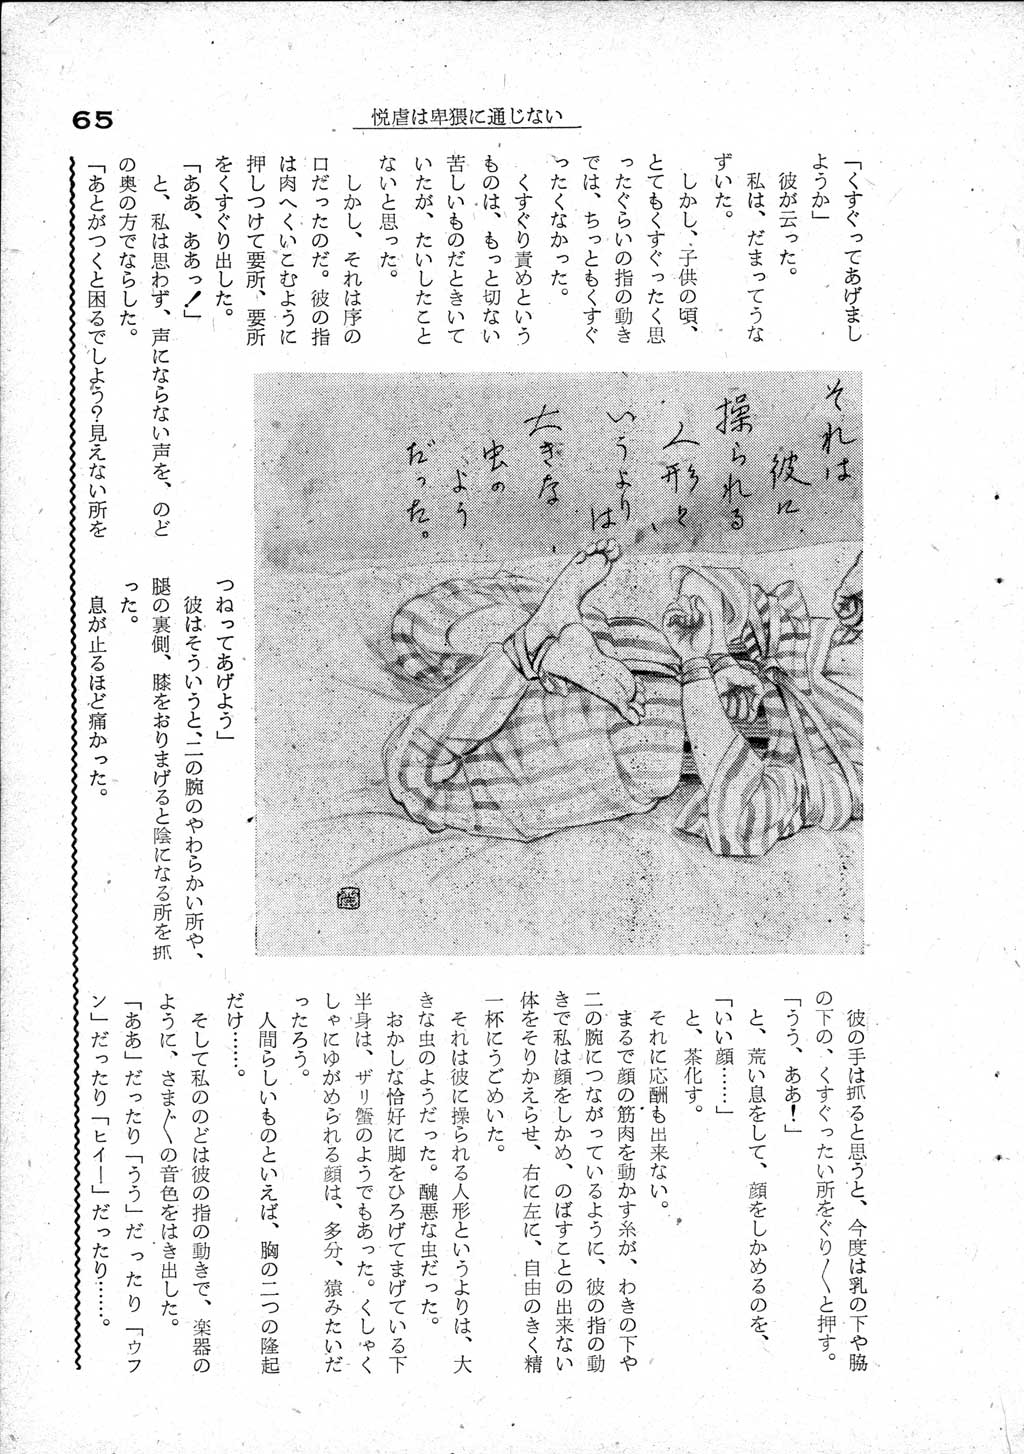 65
悦虐は卑猥に通じない
「くすぐってあげまし
ようか」
彼が云った。
私は、だまってうな
ずいた。
しかし、子供の頃、
とてもくすぐったく思
ったぐらいの指の動き
では、ちっともくすぐ
ったくなかった。
くすぐり責めという
ものは、もっと切ない
苦しいものだときいて
いたが、たいしたこと
ないと思った。
しかし、それは序の
口だったのだ。彼の指
は肉へくいこむように
押しつけて要所、要所
をくすぐり出した。
「ああ、ああっ!」
と、私は思わず、声にならない声を、のど
の奥の方でならした。
「あとがつくと困るでしよう?見えない所を
つねってあげよう」
彼はそういうと、二の腕のやわらかい所や、
腿の裏側、膝をおりまげると陰になる所を抓
った。
息が止るほど痛かった。
それは
彼に
操られる
人形と
いうより
は
大きな
虫の
よう
だった。
彼の手は抓ると思うと、今度は乳の下や脇
の下の、くすぐったい所をぐり〱と押す。
「うう、ああ!」
と、荒い息をして、顔をしかめるのを、
「いい顔……」
と、茶化す。
それに応酬も出来ない。
まるで顔の筋肉を動かす糸が、わきの下や
二の腕につながっているように、彼の指の動
きで私は顔をしかめ、のばすことの出来ない
体をそりかえらせ、右に左に、自由のきく精
一杯にうごめいた。
それは彼に操られる人形というよりは、大
きな虫のようだった。醜悪な虫だった。
おかしな恰好に脚をひろげてまげている下
半身は、ザリ蟹のようでもあった。くしゃく
しゃにゆがめられる顔は、多分、猿みたいだ
ったろう。
人間らしいものといえば、胸の二つの隆起
だけ……。
そして私ののどは彼の指の動きで、楽器の
ように、さま〲の音色をはき出した。
「ああ」だったり「うう」だったり「ウフ
ン」だったり「ヒイー」だったり……。